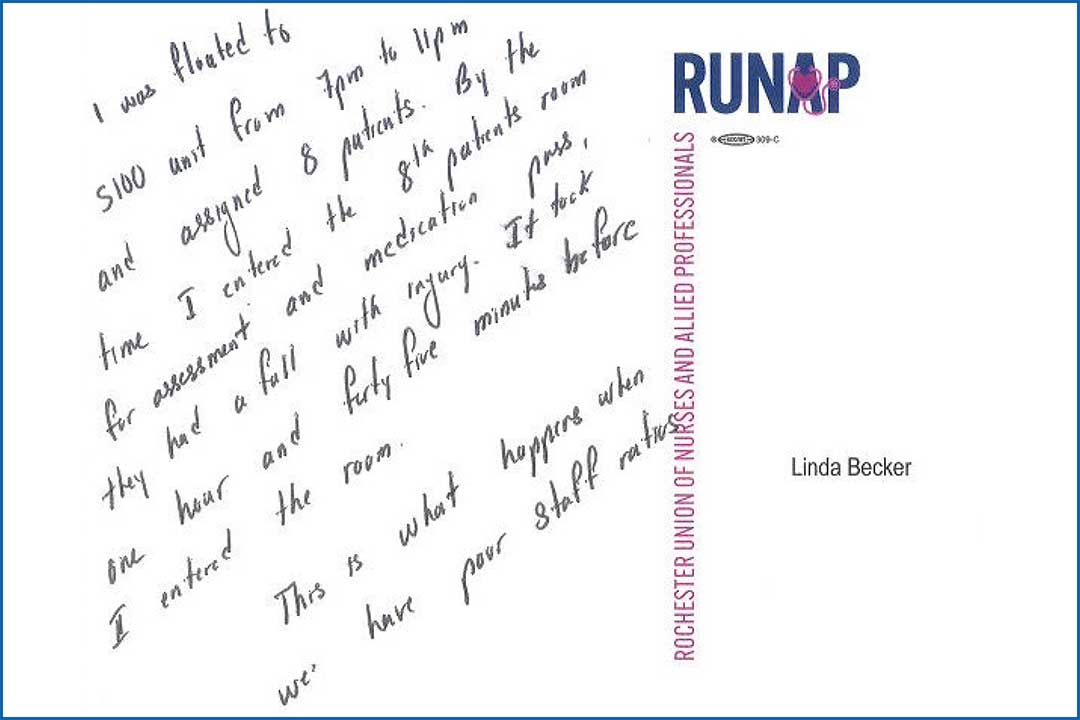 I was floated to
5100 unit from 7pm to 11pm
and assigned 8 patients. By the
time I entered the 8th patients room
for assessment and medication pass,
they had a fall with injury. It took
one hour and forty five minutes before
I entered the room.
This is what happens when
we have poor staff ratios
RUNAP
309-C
ROCHESTER UNION OF NURSES AND ALLIED PROFESSIONALS
Linda Becker